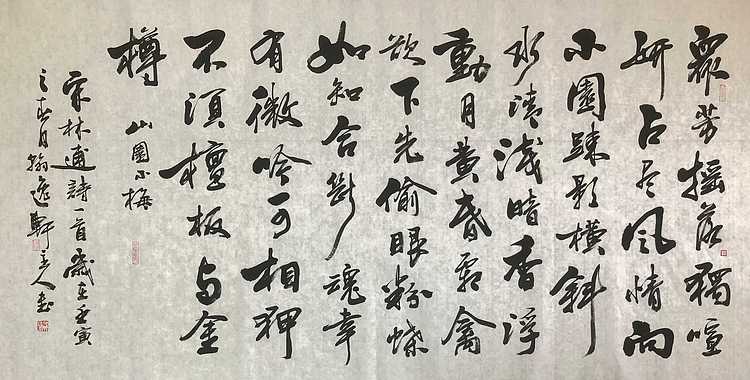 眾芳摇落獨喧
妍占尽風情向
小園疎影横斜
水清淺暗香浮
動月黄昏霜禽
欲下先偷眼粉蝶
如知合断魂幸
有微吟可相狎
不須檀板与金
樽
山園小梅
宋林逋詩一首歲在壬寅
之月翰逸軒主人书